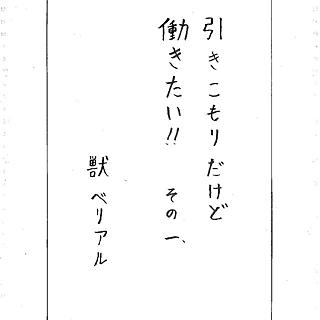 引きこもりだけど
働きたい!! その一、
獣 ベリアル